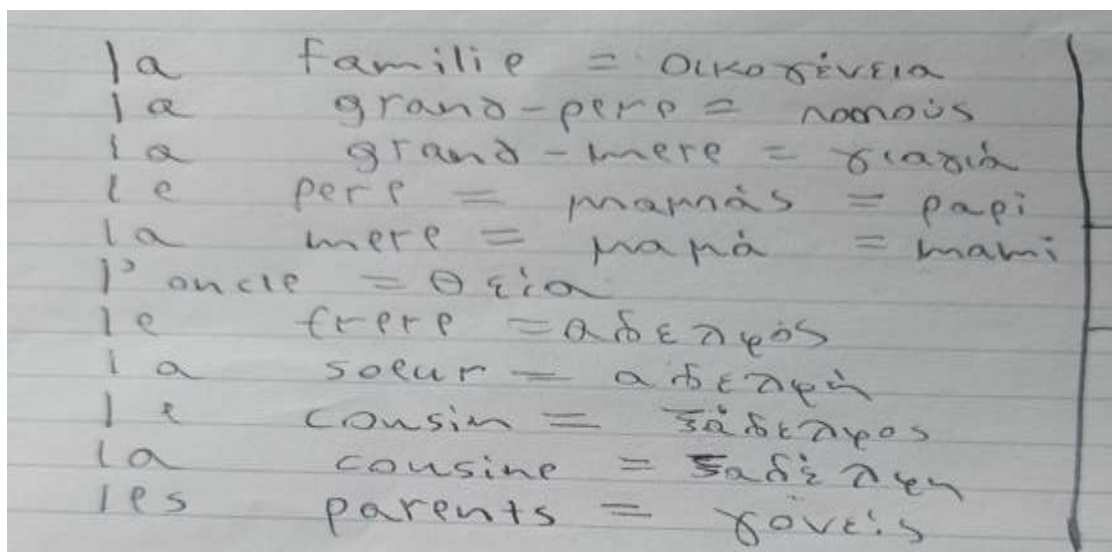 la familie = οικογένεια
la grand-pere = παππούς
la grand-mere = γιαγιά
le pere = μπαμπάς = papi
la mere = μαμά = mami
l'oncle = θεία
le frere = αδελφός
la soeur = αδελφή
le cousin = ξάδελφος
la cousine = ξαδέλφη
les parents = γόνείς